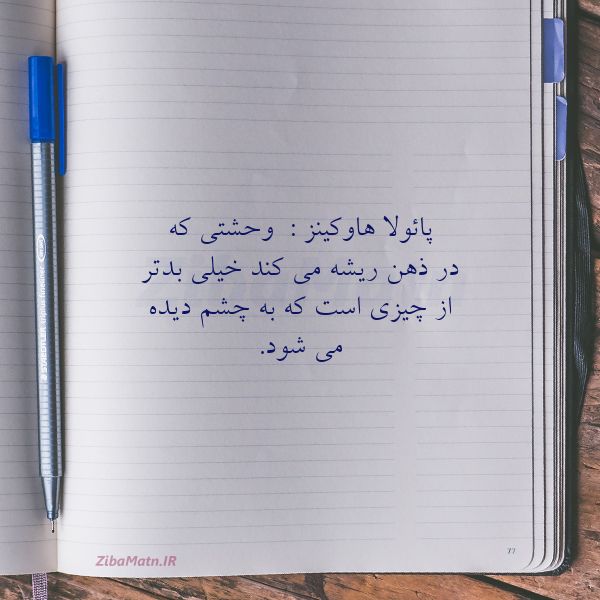 پائولا هاوکینز : وحشتی که
در ذهن ریشه می کند خیلی بدتر
از چیزی است که به چشم دیده
می شود.
ZibaMatn.IR
77